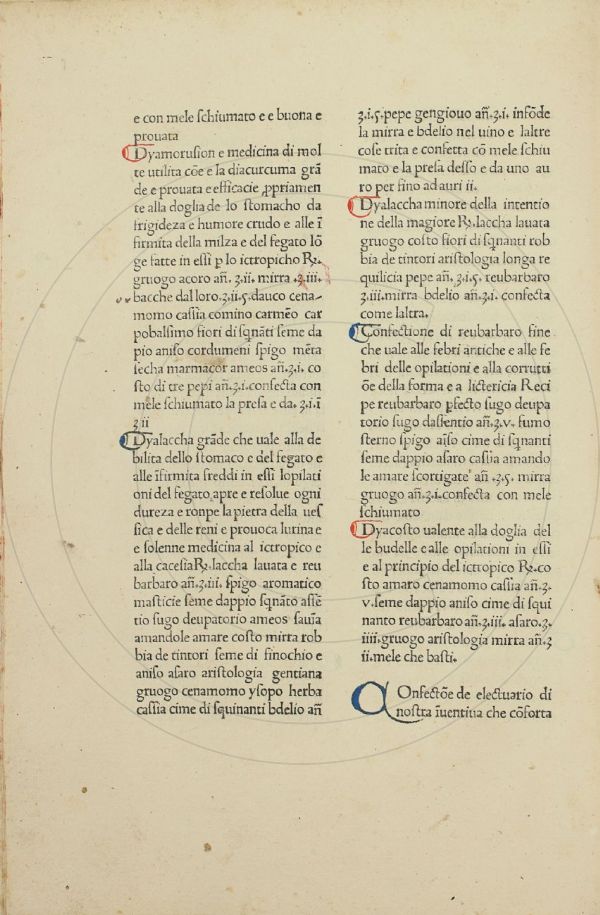 e con mele ſchiumato e e buona e
prouata
Dyamoruſion e medicina di mol
te utilita cõe e la diacurcuma grã
de e prouata e efficacie ꝓpriamen
te alla doglia de lo ſtomacho da
frigideza e humore crudo e alle ĩ
firmita della milza e del fegato lõ
ge fatte in eſſi p lo ictropicho ℞.
gruogo acoro añ. ʒ.ii. mirra .ʒ.iii.
bacche dalloro.ʒ.ii.ς.dauco cena⸗
momo caſſia comino carmẽo car
pobalſimo fiori di ſqnãti ſeme da
pio aniſo cordumeni ſpigo mẽta
ſecha marmacor ameos añ.ʒ.i. co
ſto di tre pepi añ.ʒ.i.confecta con
mele ſchiumato la preſa e da. ʒ.i.ĩ
ʒ ii
Dyalaccha grãde che uale alla de
bilita dello ſtomaco e del fegato e
alle ĩfirmita freddi in eſſi lopilati
oni del fegato apre e reſolue ogni
dureza e ronpe la pietra della ueſ
ſica e delle reni e prouoca lurina e
e ſolenne medicina al ictropico e
alla caceſia ℞. laccha lauata e reu
barbaro añ.ʒ.iii. ſpigo aromatico
maſticie ſeme dappio ſqnãto aſſẽ
tio ſugo deupatorio ameos ſauĩa
amandole amare coſto mirra rob
bia de tintori ſeme di finochio e
aniſo aſaro ariſtologia gentiana
gruogo cenamomo yſopo herba
caſſia cime di ſquinanti bdelio añ
ʒ.i.ς.pepe gengiouo añ.ʒ.i. infõde
la mirra e bdelio nel uino e laltre
coſe trita e confetta cõ mele ſchiu
mato e la preſa deſſo e da uno au
ro per fino ad auri ii.
Dyalaccha minore della intentio
ne della magiore ℞. laccha lauata
gruogo coſto fiori di ſqnanti rob
bia de tintori ariſtologia longa re
quilicia pepe añ.ʒ.i.ς. reubarbaro
ʒ.iii.mirra bdelio añ.ʒ.i. confecta
come laltra.
Confectione di reubarbaro fine
che uale alle febri antiche e alle fe
bri delle opilationi e alla corrutti
õe della forma e a lictericia Reci
pe reubarbaro ꝑfecto ſugo deupa
torio ſugo daſſentio añ.ʒ.v. fumo
ſterno ſpigo aĩſo cime di ſqnanti
ſeme dappio aſaro caſſia amando
le amare ſcortigate añ .ʒ.ς. mirra
gruogo añ.ʒ.i.confecta con mele
ſchiumato
Dyacoſto ualente alla doglia del
le budelle e alle opilationi in eſſi
e al principio del ictropico ℞.co
ſto amaro cenamomo caſſia añ.ʒ.
v.ſeme dappio aniſo cime di ſqui
nanto reubarbaro añ.ʒ.iii. aſaro.ʒ.
iiii.gruogo ariſtologia mirra añ.ʒ
ii.mele che baſti.
COnfectõe de electuario di
noſtra ĩuentiua che cõforta